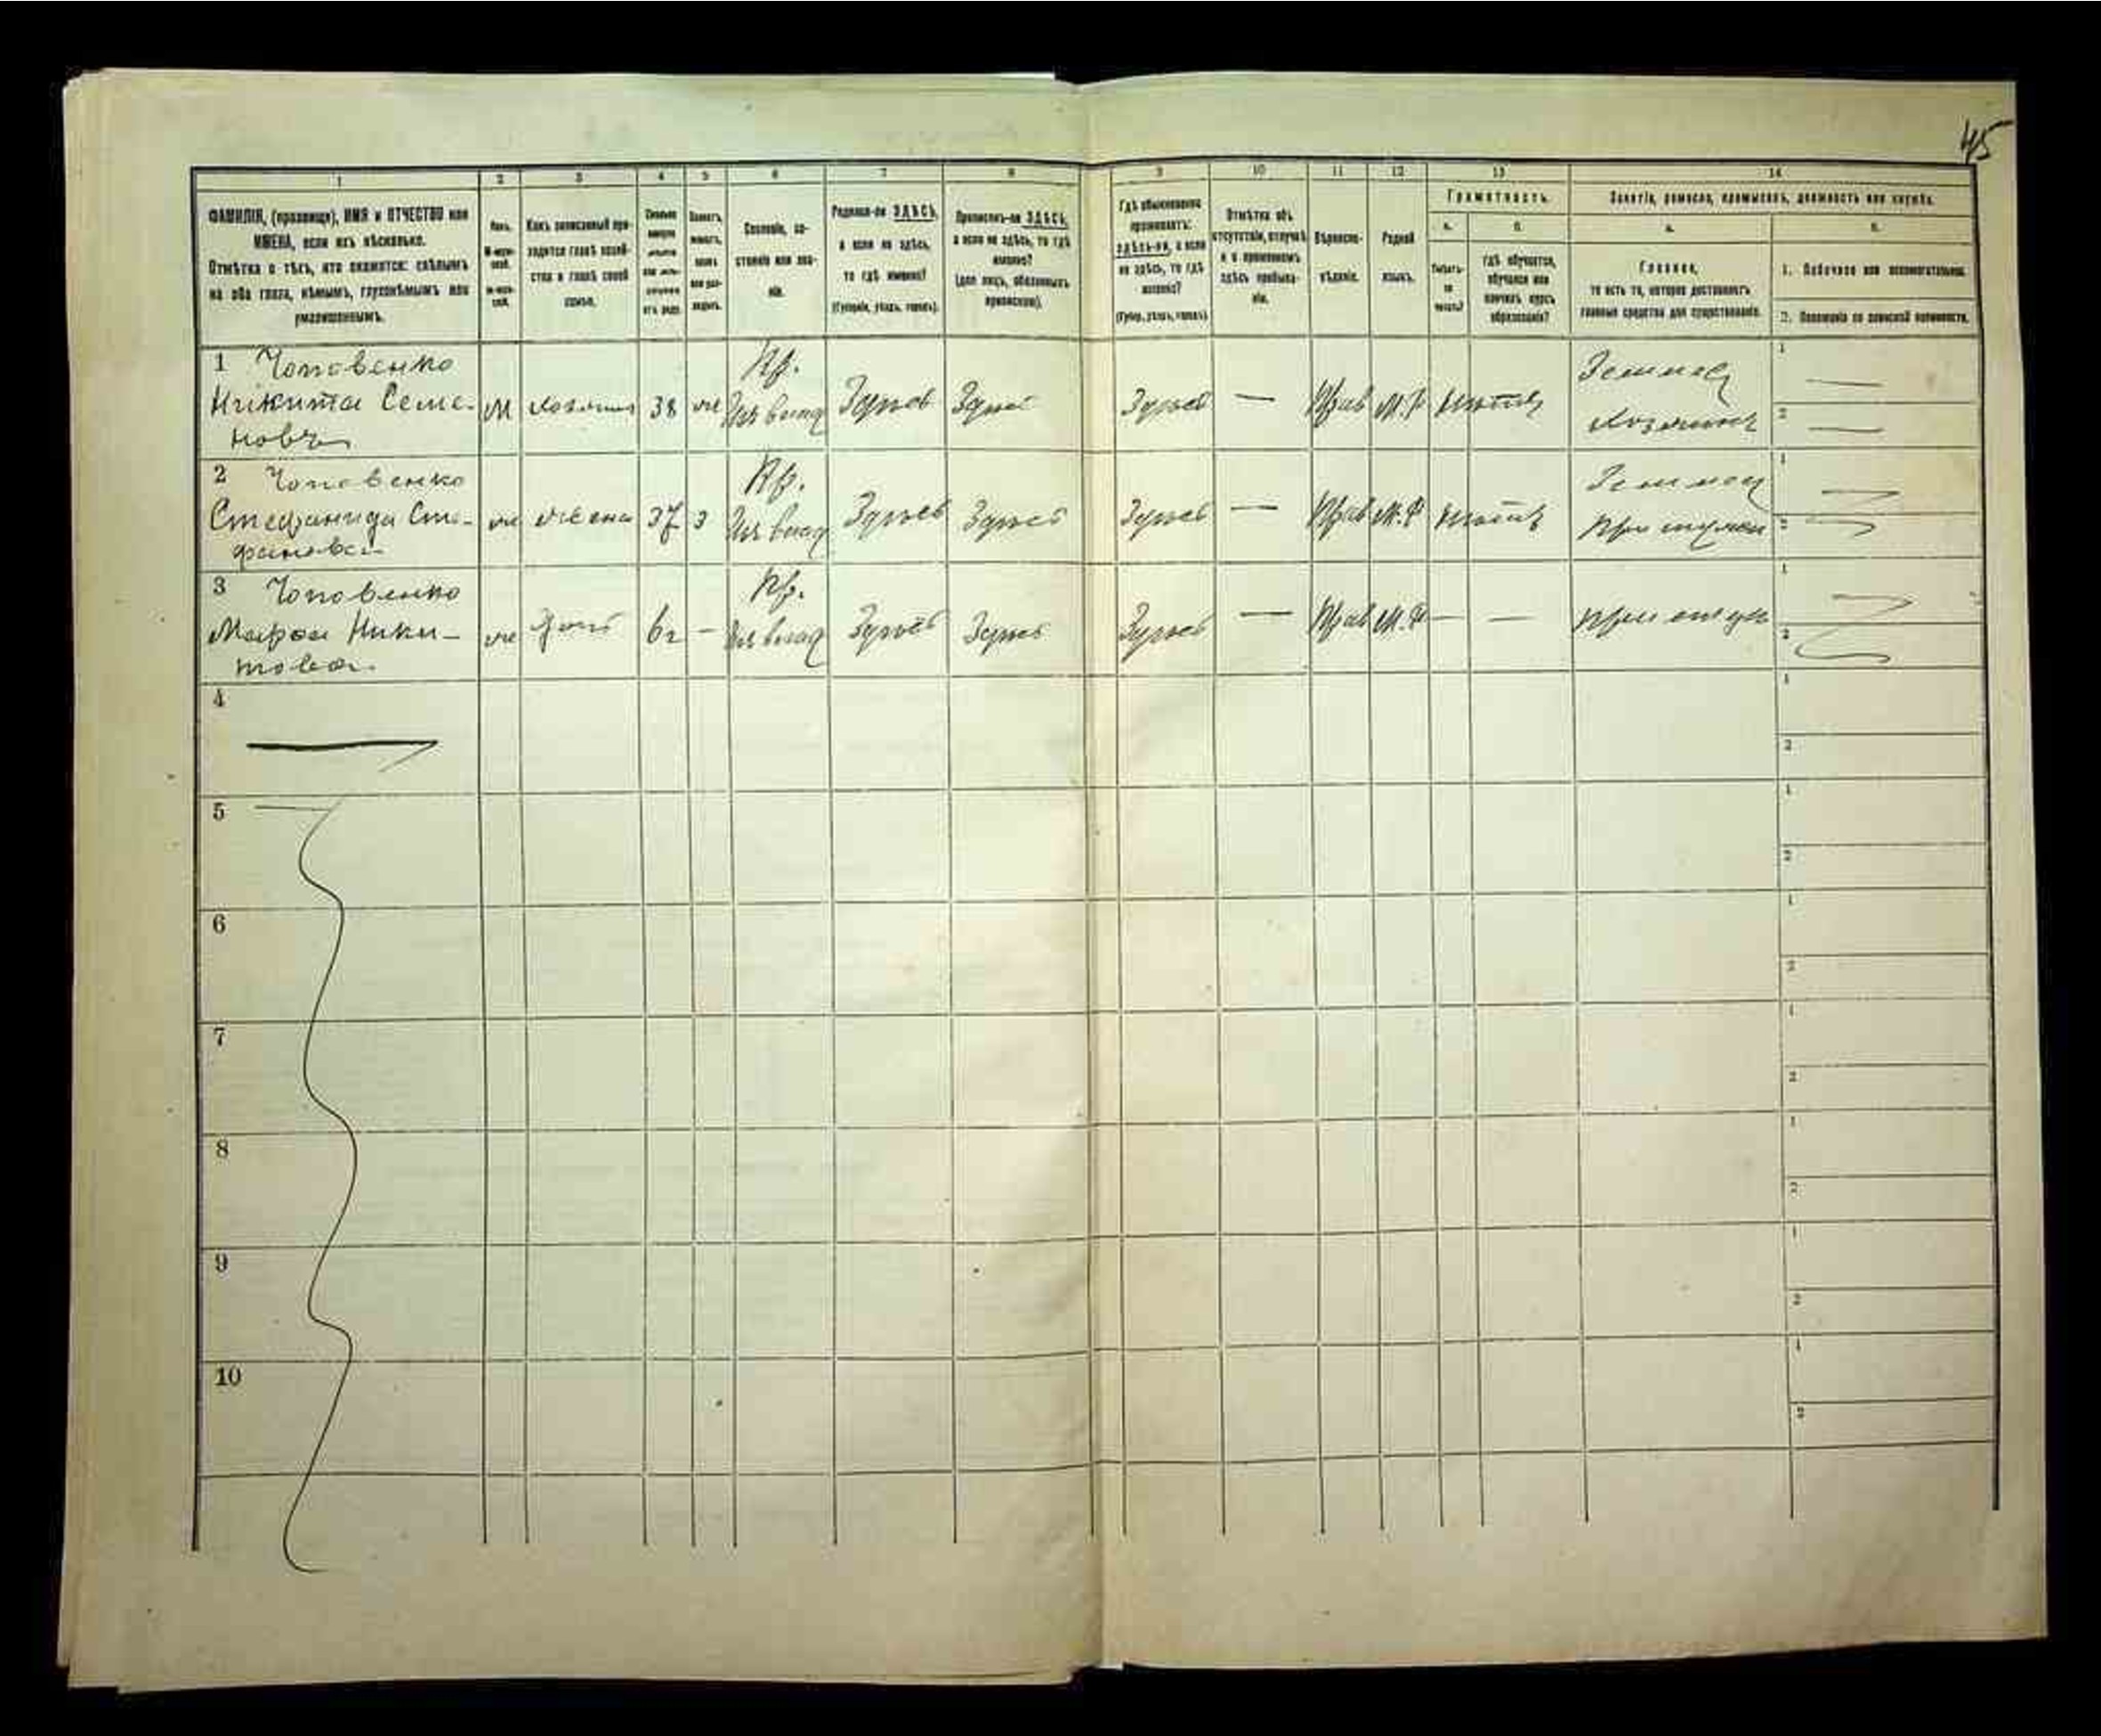 45
1 2 3 4 5 6 7 8 9 10 11 12 13 14
Грамотность.
Занятіе, ремесло, промыселъ, должность или служба.
ФАМИЛІЯ, (прозвище), ИМЯ и ОТЧЕСТВО или
ИМЕНА, если ихъ нѣсколько.
Отмѣтка о тѣхъ, кто окажется: слѣпымъ
на оба глаза, нѣмымъ, глухонѣмымъ или
умалишеннымъ.
Полъ.
М-муж-
ской.
Ж-жен-
скій.
Какъ записанный при-
ходится главѣ хозяй-
ства и главѣ своей
семьи.
Сословіе, со-
стояніе или зва-
ніе.
Родился-ли ЗДѢСЬ,
а если не здѣсь,
то гдѣ именно?
(Губернія, уѣздъ, городъ).
Приписанъ-ли ЗДѢСЬ,
а если не здѣсь, то гдѣ
именно?
(для лицъ, обязанныхъ
припискою).
Гдѣ обыкновенно
проживаетъ:
здѣсь-ли, а если
не здѣсь, то гдѣ
именно?
(Губер., уѣздъ, городъ).
Отмѣтка объ
отсутствіи, отлучкѣ
и о временномъ
здѣсь пребыва-
ніи.
Вѣроиспо-
вѣданіе.
Родной
языкъ.
а.
Умѣетъ-
ли
читать?
б.
Гдѣ обучается,
обучался или
кончилъ курсъ
образованія?
а.
Главное,
то есть то, которое доставляетъ
главныя средства для существованія.
б.
1. Побочное или вспомогательное.
2. Положеніе по воинской повинности.
1 Чоповенко
Никита Семе-
новъ
М Хозяинъ 38 ж Кр. Здѣсь Здѣсь Здѣсь — Прав М.Р нѣтъ
Землед
Хозяинъ
1 —
2 —
2 Чоповенко
Стефанида Сте-
фанова
ж жена 37 З Кр. Здѣсь Здѣсь Здѣсь — Прав М.Р нѣтъ
Землед
При мужѣ
1
2
3 Чоповенко
Марфа Ники-
това
ж дочь 6г — Кр. Здѣсь Здѣсь Здѣсь — Прав М.Р — —
При отцѣ
1
2
4
1
2
5
1
2
6
1
2
7
1
2
8
1
2
9
1
2
10
1
2